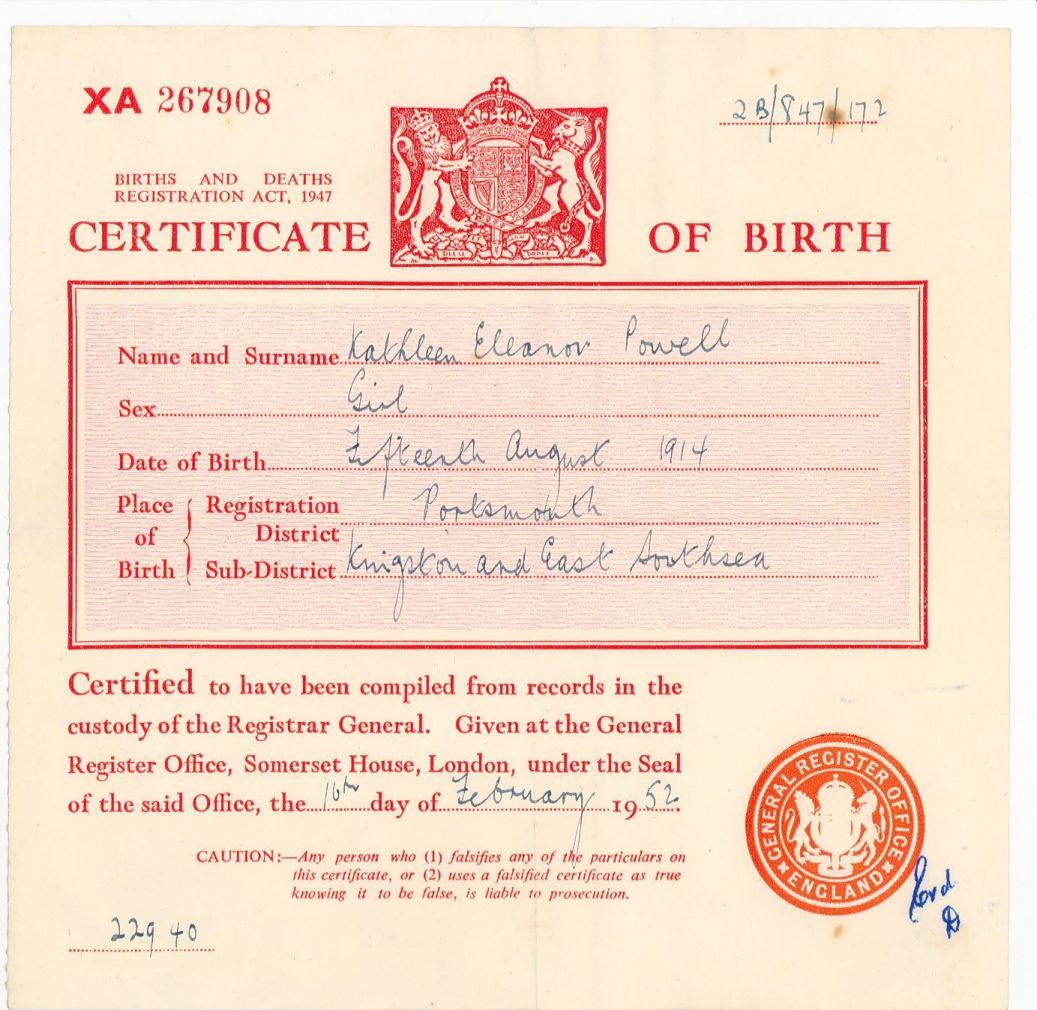 XA 267908
2B/847/172
BIRTHS AND DEATHS
REGISTRATION ACT, 1947
CERTIFICATE OF BIRTH
Name and Surname Kathleen Eleanor Powell
Sex Girl
Date of Birth Fifteenth August 1914
Place of Birth { Registration District Portsmouth
Sub-District Kingston and East Southsea
Certified to have been compiled from records in the
custody of the Registrar General. Given at the General
Register Office, Somerset House, London, under the Seal
of the said Office, the 16th day of February 1952.
CAUTION:—Any person who (1) falsifies any of the particulars on
this certificate, or (2) uses a falsified certificate as true
knowing it to be false, is liable to prosecution.
GENERAL REGISTER OFFICE
ENGLAND
22940